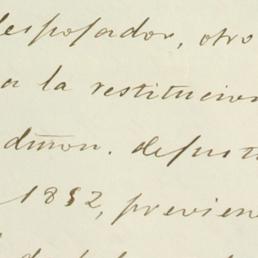 despojador, otro
a la restitucion
dmon. defuti
1892, previen